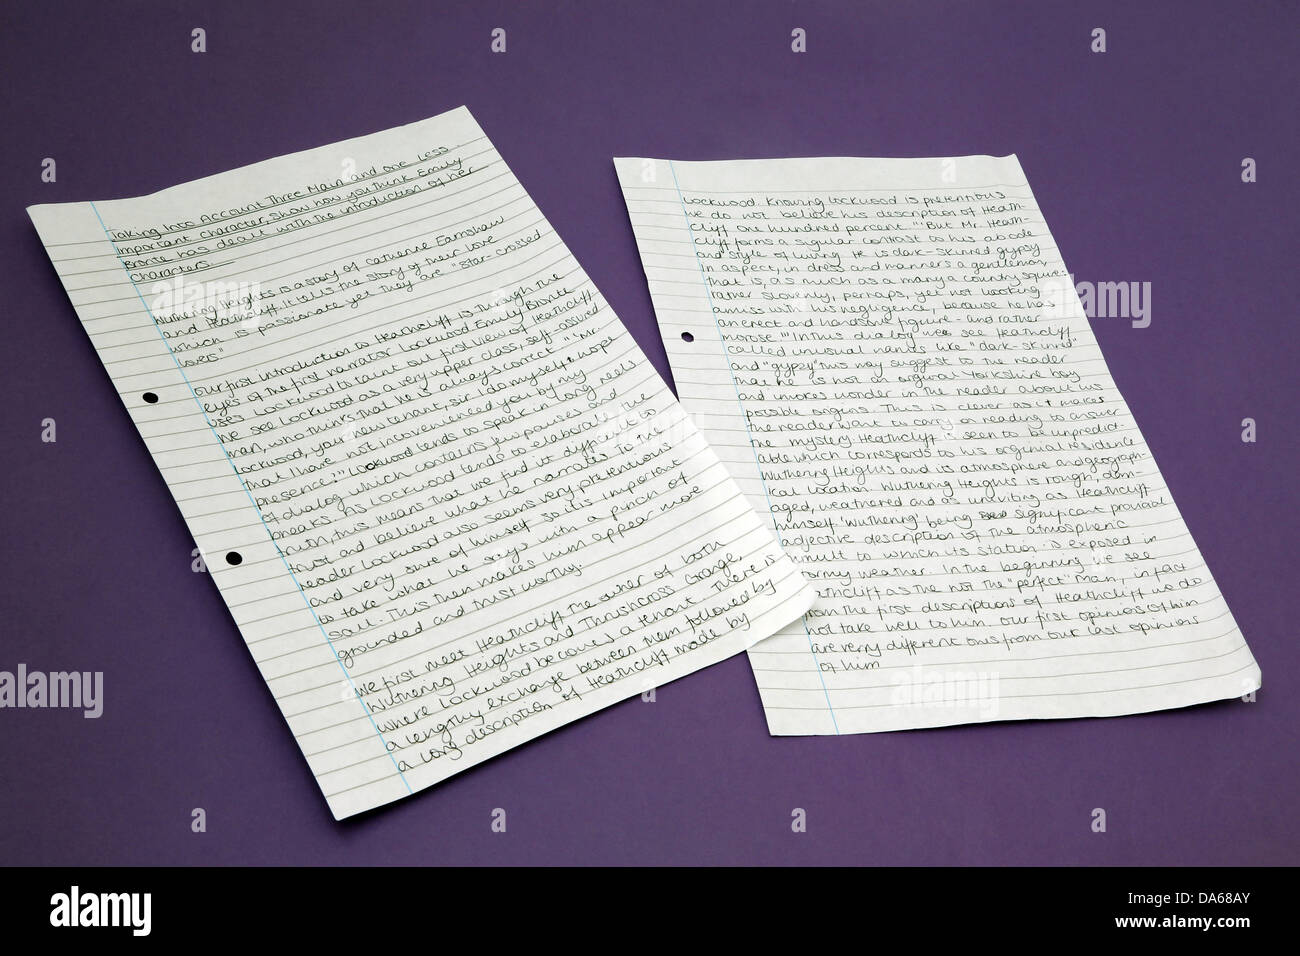 Taking Into Account Three Main and one Less
Important Character, show how you think Emily
Bronte has dealt with the introduction of her
characters.
Wuthering Heights is a story of Catherine Earnshaw
and Heathcliff, it tells the story of their love
which is passionate yet they are "Star-crossed
lovers"
Our first introduction to Heathcliff is through the
eyes of the first narrator Lockwood Emily Bronte
uses Lockwood to paint our first view of Heathcliff.
We see Lockwood as a very upper class, self-assured
man, who thinks that he is always correct "'Mr.
Lockwood, your new tenant, sir. I do myself
that I have not inconvenienced you by my
presence;'" Lockwood tends to speak in long reels
of dialog which contains few pauses and
breaks. As Lockwood tends to elaborate the
truth, this means that we find it difficult to
trust and believe what he narrates. To the
reader Lockwood also seems very pretentious
and very sure of himself so it is important
to take what he says with a pinch of
salt. This then makes him appear more
grounded and trust worthy.
We first meet Heathcliff the owner of both
Wuthering Heights and Thrushcross Grange,
where Lockwood becomes a tenant. There is
a lengthy exchange between them followed by
a long description of Heathcliff made by
Lockwood. Knowing Lockwood is pretentious
we do not believe his description of Heath-
cliff one hundred percent "'But Mr. Heath-
cliff forms a sigular contrast to his abode
and style of living. He is dark-skinned gypsy
in aspect, in dress and manners a gentleman,
that is, as much as a many country squire:
rather slovenly, perhaps, yet not looking
amiss with his negligence, because he has
an erect and handsome figure - and rather
morose'" In this dialog we see Heathcliff
called unusual names like "dark-skinned"
and "gypsy" this may suggest to the reader
that he is not an orginal Yorkshire boy
and invokes wonder in the reader about his
possible origins. This is clever as it makes
the reader want to carry on reading to answer
the mystery. Heathcliff is seen to be unpredict-
able which corresponds to his original residence
Wuthering Heights and its atmosphere and geograph-
ical location. Wuthering Heights is rough, dam-
aged, weathered and as uninviting as Heathcliff
himself 'Wuthering' being significant provincial
adjective description of the atmospheric
tumult to which its station is exposed in
stormy weather. In the beginning we see
Heathcliff as the not the "perfect" Man, in fact
from the first descriptions of Heathcliff we do
not take well to him. Our first opinions of him
are very different ones from our last opinions
of him
alamy
a
D A68AY
www.alamy.com